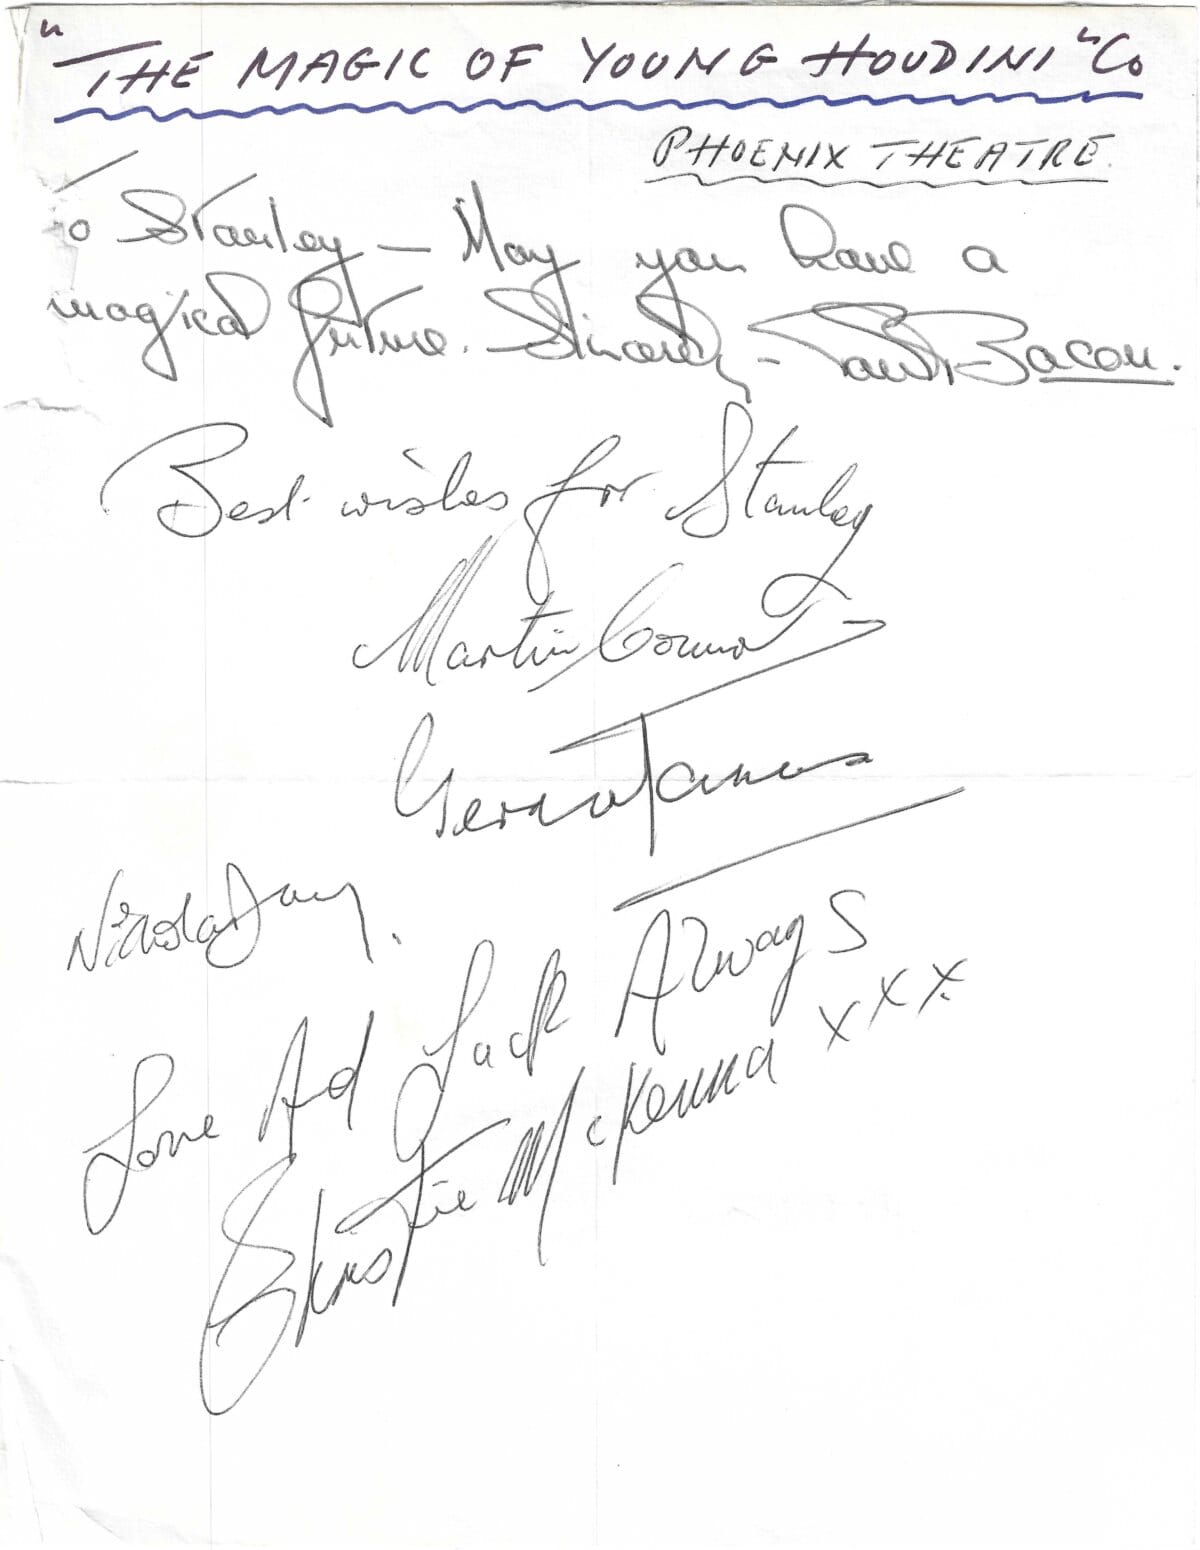 "THE MAGIC OF YOUNG HOUDINI" Co
PHOENIX THEATRE.
To Stanley — May you have a
magical future. Sincerely - Bacon.
Best wishes for Stanley
Martin Connor
James
Nicola
Love And Luck Always
Christie McKenna xxx